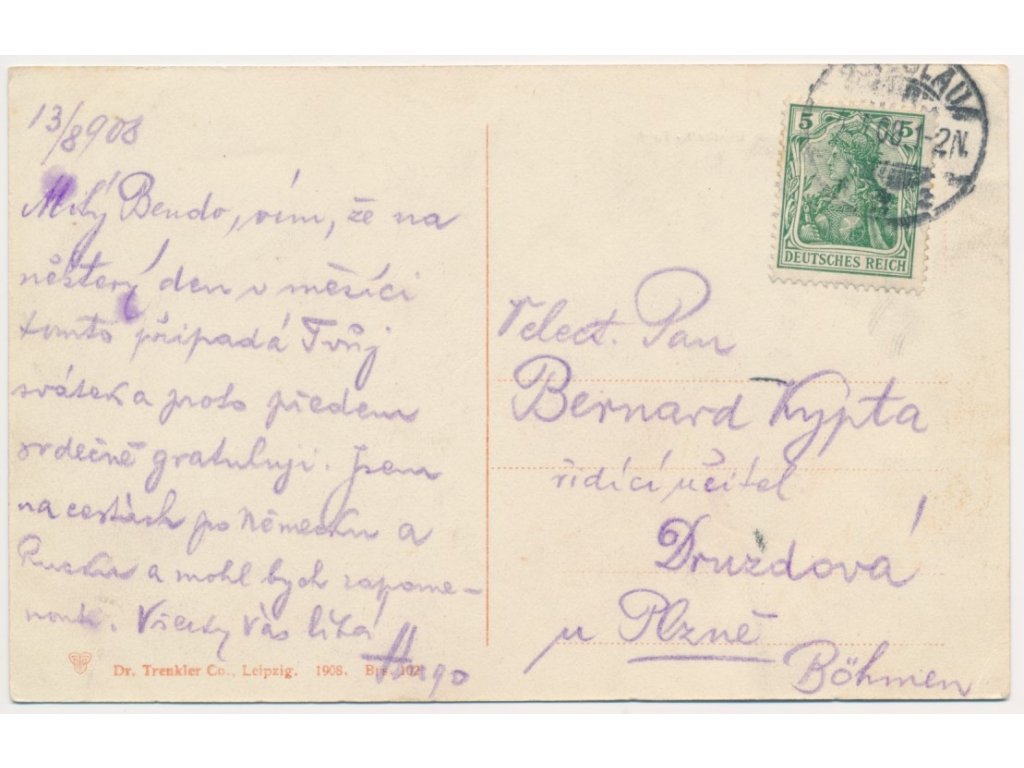 13/8 908
Milý Bendo, vím, že na
některý den v měsíci
tomto připadá Tvůj
svátek a proto předem
srdečně gratuluji. Jsem
na cestách po Německu a
Rusku a mohl bych zapome-
nout. Všecky Vás líbá
Hugo
Dr. Trenkler Co., Leipzig. 1908. Brs. 102
5 5
DEUTSCHES REICH
1-2N.
Velect. Pan
Bernard Kypta
řídící učitel
Druzdová
u Plzně
Böhmen